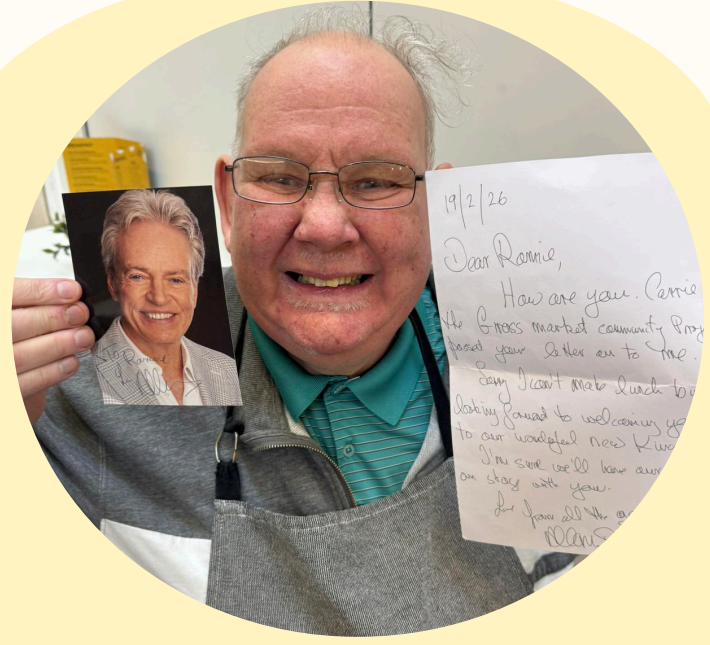 To Ronnie
19/2/26
Dear Ronnie,
How are you. Carrie
the Grass market community Proj
passed your letter on to me.
Sorry I can't make lunch bu
looking forward to welcoming yo
to our wonderful new
I'm sure we'll have
on stage with you.
Love from all the